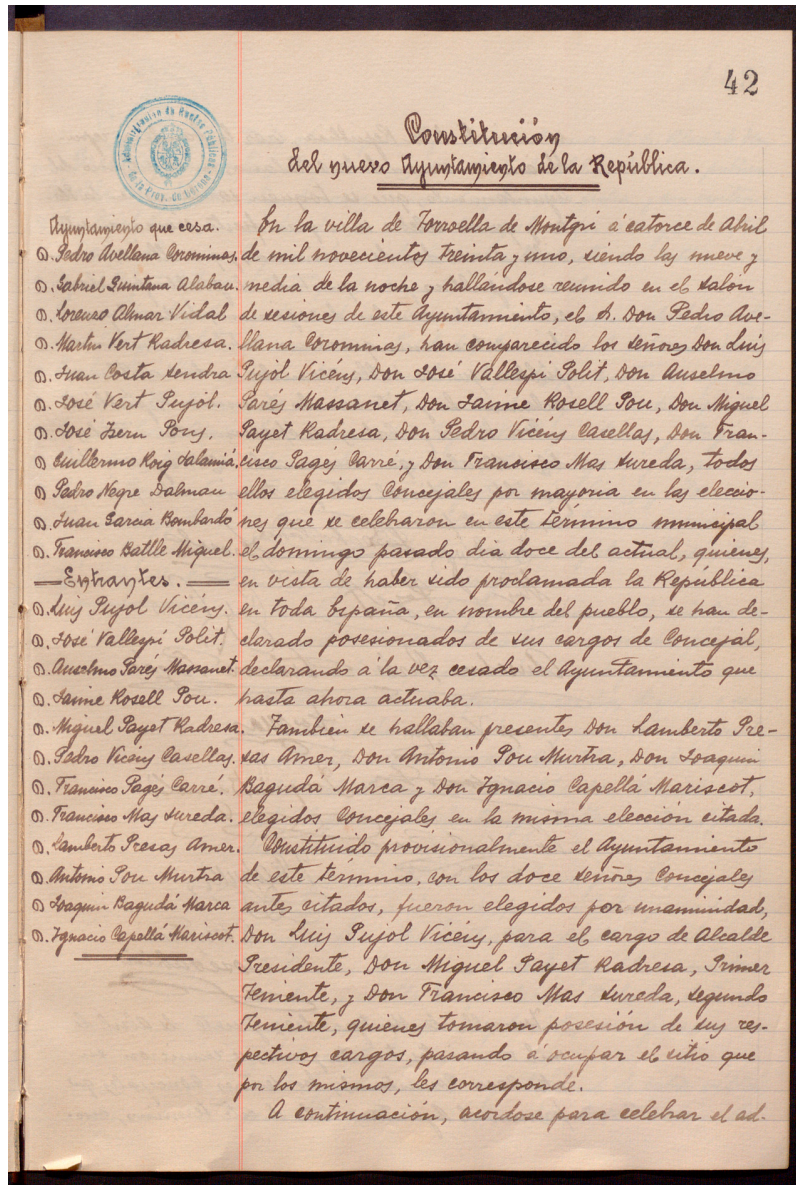 42
Constitución
del nuevo Ayuntamiento de la República.
Administración de Rentas Públicas
de la Prov. de Gerona
Ayuntamiento que cesa.
D. Pedro Avellana Corominas.
D. Gabriel Quintana Alabau.
D. Lorenzo Almar Vidal
D. Martin Vert Radresa.
D. Juan Costa Sendra
D. José Vert Pujol.
D. José Pons.
D. Guillermo Roig Salamiá.
D. Pedro Negre Dalmau
D. Juan Garcia Bombardó
D. Francisco Batlle Miquel.
Entrantes.
D. Luis Pujol Vicéns.
D. José Vallespí Polit.
D. Anselmo Parés Massanet.
D. Jaime Rosell Pou.
D. Miguel Payet Radresa.
D. Pedro Vicéns Casellas.
D. Francisco Pagés Carré.
D. Francisco Mas Sureda.
D. Lamberto Presas Amer.
D. Antonio Pou Murtra
D. Joaquin Bagudá Marca
D. Ignacio Capellá Mariscot.
En la villa de Torroella de Montgrí á catorce de Abril
de mil novecientos treinta y uno, siendo las nueve y
media de la noche y hallándose reunido en el salón
de sesiones de este Ayuntamiento, el S. Don Pedro Ave-
llana Corominas, han comparecido los señores Don Luis
Pujol Vicéns, Don José Vallespi Polit, Don Anselmo
Parés Massanet, Don Jaime Rosell Pou, Don Miguel
Payet Radresa, Don Pedro Vicéns Casellas, Don Fran-
cisco Pagés Carré, y Don Francisco Mas Sureda, todos
ellos elegidos Concejales por mayoria en las eleccio-
nes que se celebraron en este término municipal
el domingo pasado dia doce del actual, quienes,
en vista de haber sido proclamada la República
en toda España, en nombre del pueblo, se han de-
clarado posesionados de sus cargos de Concejal,
declarando á la vez cesado el Ayuntamiento que
hasta ahora actuaba.
Tambien se hallaban presentes Don Lamberto Pre-
sas Amer, Don Antonio Pou Murtra, Don Joaquin
Bagudá Marca y Don Ignacio Capellá Mariscot,
elegidos Concejales en la misma elección citada.
Constituido provisionalmente el Ayuntamiento
de este término, con los doce señores Concejales
antes citados, fueron elegidos por unaminidad,
Don Luis Pujol Vicéns, para el cargo de Alcalde
Presidente, Don Miguel Payet Radresa, Primer
Teniente, y Don Francisco Mas Sureda, segundo
Teniente, quienes tomaron posesión de sus res-
pectivos cargos, pasando á ocupar el sitio que
por los mismos, les corresponde.
A continuación, acordose para celebrar el ad-